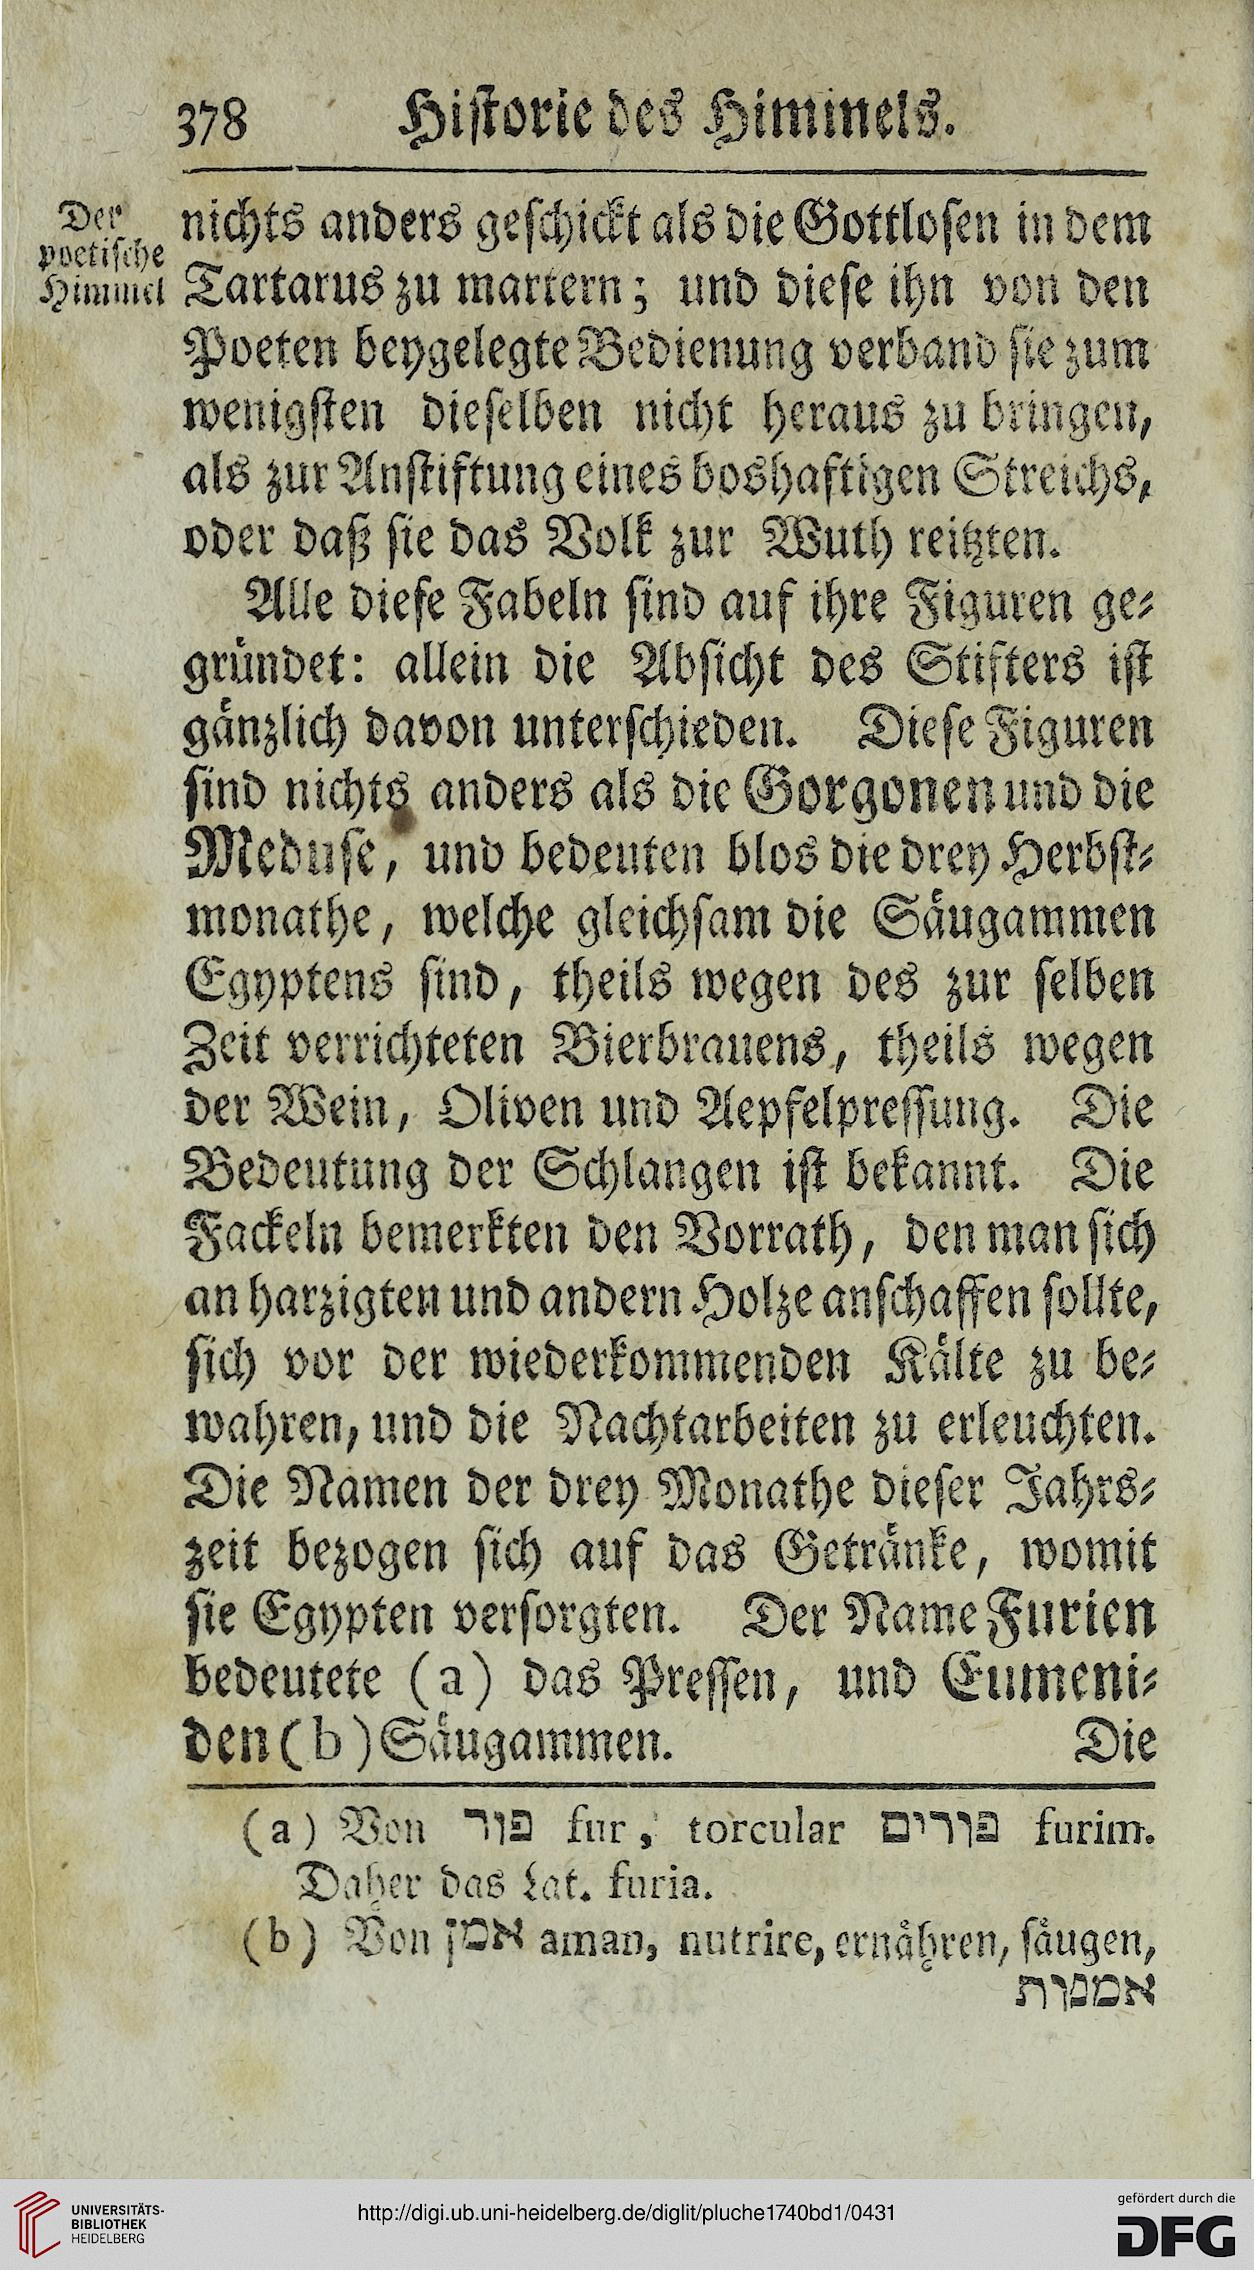 378 Historie des Himmels.
Der
poetische
Himmel
nichts anders geschickt als die Gottlosen in dem
Tartarus zu martern; und diese ihn von den
Poeten beygelegte Bedienung verband sie zum
wenigsten dieselben nicht heraus zu bringen,
als zur Anstiftung eines boshaftigen Streichs,
oder daß sie das Volk zur Wuth reitzten.
Alle diese Fabeln sind auf ihre Figuren ge-
gründet: allein die Absicht des Stifters ist
gänzlich davon unterschieden. Diese Figuren
sind nichts anders als die Gorgonen und die
Meduse, und bedeuten blos die drey Herbst-
monathe, welche gleichsam die Säugammen
Egyptens sind, theils wegen des zur selben
Zeit verrichteten Bierbrauens, theils wegen
der Wein, Oliven und Aepfelpressung. Die
Bedeutung der Schlangen ist bekannt. Die
Fackeln bemerkten den Vorrath, den man sich
an harzigten und andern Holze anschaffen sollte,
sich vor der wiederkommenden Kälte zu be-
wahren, und die Nachtarbeiten zu erleuchten.
Die Namen der drey Monathe dieser Jahrs-
zeit bezogen sich auf das Getränke, womit
sie Egypten versorgten. Der Name Furien
bedeutete (a) das Pressen, und Eumeni-
den (b) Säugammen. Die
(a) Von פור fur, torcular פורים furim.
Daher das Lat. furia.
(b) Von אמן aman, nutrire, ernähren, säugen,
אמנות
UNIVERSITÄTS-
BIBLIOTHEK
HEIDELBERG
http://digi.ub.uni-heidelberg.de/diglit/pluche1740bd1/0431
gefördert durch die
DFG